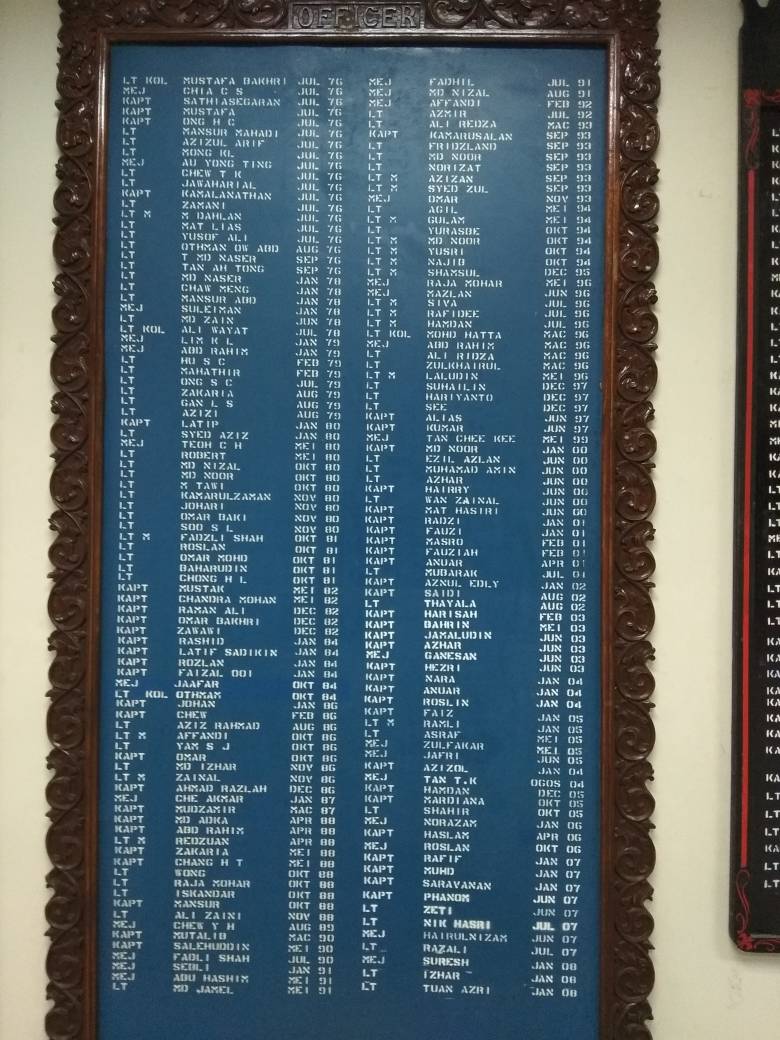 OFFICER
LT KOL MUSTAFA BAKHRI JUL 76
MEJ CHIA C S JUL 76
KAPT SATHIASEGARAN JUL 76
KAPT MUSTAFA JUL 76
KAPT ONG H C JUL 76
LT MANSUR MAHADI JUL 76
LT AZIZUL ARIF JUL 76
LT MONG KL JUL 76
MEJ AU YONG TING JUL 76
LT CHEW T K JUL 76
LT JAWAHARIAL JUL 76
KAPT KAMALANATHAN JUL 76
LT ZAMANI JUL 76
LT M M DAHLAN JUL 76
LT MAT LIAS JUL 76
LT YUSOF ALI JUL 76
LT OTHMAN OW ABD AUG 76
LT T MD NASER SEP 76
LT TAN AH TONG SEP 76
LT MD NASER JAN 78
LT CHAW MENG JAN 78
LT MANSUR ABD JAN 78
MEJ SULEIMAN JAN 78
LT MD ZAIN JUN 78
LT KOL ALI WAYAT JUL 78
MEJ LIM K L JAN 79
MEJ ABD RAHIM JAN 79
LT HU S C FEB 79
LT MAHATHIR FEB 79
LT ONG S C JUL 79
LT ZAKARIA AUG 79
LT GAN L S AUG 79
LT AZIZI AUG 79
KAPT LATIP JAN 80
LT SYED AZIZ JAN 80
MEJ TEOH C H MEI 80
LT ROBERT MEI 80
LT MD NIZAL OKT 80
LT MD NOOR OKT 80
LT M TAWI OKT 80
LT KAMARULZAMAN NOV 80
LT JOHARI NOV 80
LT OMAR BAKI NOV 80
LT SOO S L NOV 80
LT M FADZLI SHAH OKT 81
LT ROSLAN OKT 81
LT OMAR MOHD OKT 81
LT BAHARUDIN OKT 81
LT CHONG H L OKT 81
KAPT MUSTAK MEI 82
KAPT CHANDRA MOHAN MEI 82
KAPT RAMAN ALI DEC 82
KAPT OMAR BAKHRI DEC 82
KAPT ZAWAWI DEC 82
KAPT RASHID JAN 84
KAPT LATIF SADIKIN JAN 84
KAPT ROZLAN JAN 84
KAPT FAIZAL OOI JAN 84
MEJ JAAFAR OKT 84
LT KOL OTHMAM OKT 84
KAPT JOHAN JAN 86
KAPT CHEW FEB 86
LT AZIZ RAHMAD AUG 86
LT M AFFANDI OKT 86
LT YAM S J OKT 86
KAPT OMAR OKT 86
LT MD IZHAR NOV 86
LT M ZAINAL NOV 86
KAPT AHMAD RAZLAH DEC 86
MEJ CHE AKMAR JAN 87
KAPT MUDZAMIR MAC 87
KAPT MD ADKA APR 88
KAPT ABD RAHIM APR 88
LT M REDZUAN APR 88
KAPT ZAKARIA MEI 88
KAPT CHANG H T MEI 88
LT WONG OKT 88
LT RAJA MOHAR OKT 88
LT ISKANDAR OKT 88
KAPT MANSUR OKT 88
LT ALI ZAINI NOV 88
MEJ CHEW Y H AUG 89
KAPT MUTALIB MAC 90
KAPT SALEHUDDIN MEI 90
MEJ FADLI SHAH JUL 90
MEJ SEBLI JAN 91
MEJ ABU HASHIM MEI 91
LT MD JAMEL MEI 91
MEJ FADHIL JUL 91
MEJ MD NIZAL AUG 91
MEJ AFFANDI FEB 92
LT AZMIR JUL 92
LT ALI REDZA MAC 93
KAPT KAMARUSALAN SEP 93
LT FRIDZLAND SEP 93
LT MD NOOR SEP 93
LT NORIZAT SEP 93
LT M AZIZAN SEP 93
LT M SYED ZUL SEP 93
MEJ OMAR NOV 93
LT AGIL MEI 94
LT M GULAM MEI 94
LT YURASDE OKT 94
LT M MD NOOR OKT 94
LT M YUSRI OKT 94
LT M NAJIB OKT 94
LT M SHAMSUL DEC 95
MEJ RAJA MOHAR MEI 96
MEJ MAZLAN JUN 96
LT M SIVA JUL 96
LT M RAFIDEE JUL 96
LT M HAMDAN JUL 96
LT KOL MOHD HATTA MAC 96
MEJ ABD RAHIM MAC 96
LT ALI RIDZA MAC 96
LT ZULKHAIRUL MAC 96
LT M LALUDIN MEI 96
LT SUHAILIN DEC 97
LT HARIYANTO DEC 97
LT SEE DEC 97
KAPT ALIAS JUN 97
KAPT KUMAR JUN 97
MEJ TAN CHEE KEE MEI 99
KAPT MD NOOR JAN 00
LT EZIL AZLAN JUN 00
LT MUHAMAD AMIN JUN 00
LT AZHAR JUN 00
KAPT HAIRRY JUN 00
LT WAN ZAINAL JUN 00
KAPT MAT HASIRI JUN 00
KAPT RADZI JAN 01
KAPT FAUZI JAN 01
KAPT MASRO FEB 01
KAPT FAUZIAH FEB 01
KAPT ANUAR APR 01
LT MUBARAK JUL 01
KAPT AZNUL EDLY JAN 02
KAPT SAIDI AUG 02
LT THAYALA AUG 02
KAPT HARISAH FEB 03
KAPT BAHRIN MEI 03
KAPT JAMALUDIN JUN 03
KAPT AZHAR JUN 03
MEJ GANESAN JUN 03
KAPT HEZRI JUN 03
KAPT NARA JAN 04
KAPT ANUAR JAN 04
KAPT ROSLIN JAN 04
KAPT FAIZ
LT M RAMLI JAN 05
LT ASRAF JAN 05
MEJ ZULFAKAR MEI 05
MEJ JAFRI MEI 05
KAPT AZIZOL JUN 05
MEJ TAN T.K JAN 04
KAPT HAMDAN OGOS 04
KAPT MARDIANA DEC 05
LT SHAHIR OKT 05
MEJ NORAZAM OKT 05
KAPT HASLAM JAN 06
MEJ ROSLAN APR 06
KAPT RAFIF OKT 06
KAPT MUHD JAN 07
KAPT SARAVANAN JAN 07
KAPT PHANOM JAN 07
LT ZETI JUN 07
LT NIK HASRI JUN 07
MEJ HAIRULNIZAM JUL 07
LT RAZALI JUN 07
MEJ SURESH JUL 07
LT IZHAR JAN 08
LT TUAN AZRI JAN 08